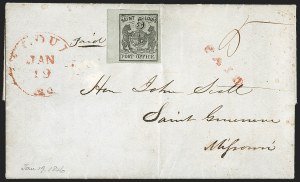 JAN
19
Paid
SAINT LOUIS
POST OFFICE
5
Hon John Scott
Saint Genevieve
Missouri
Jan 19, 1846